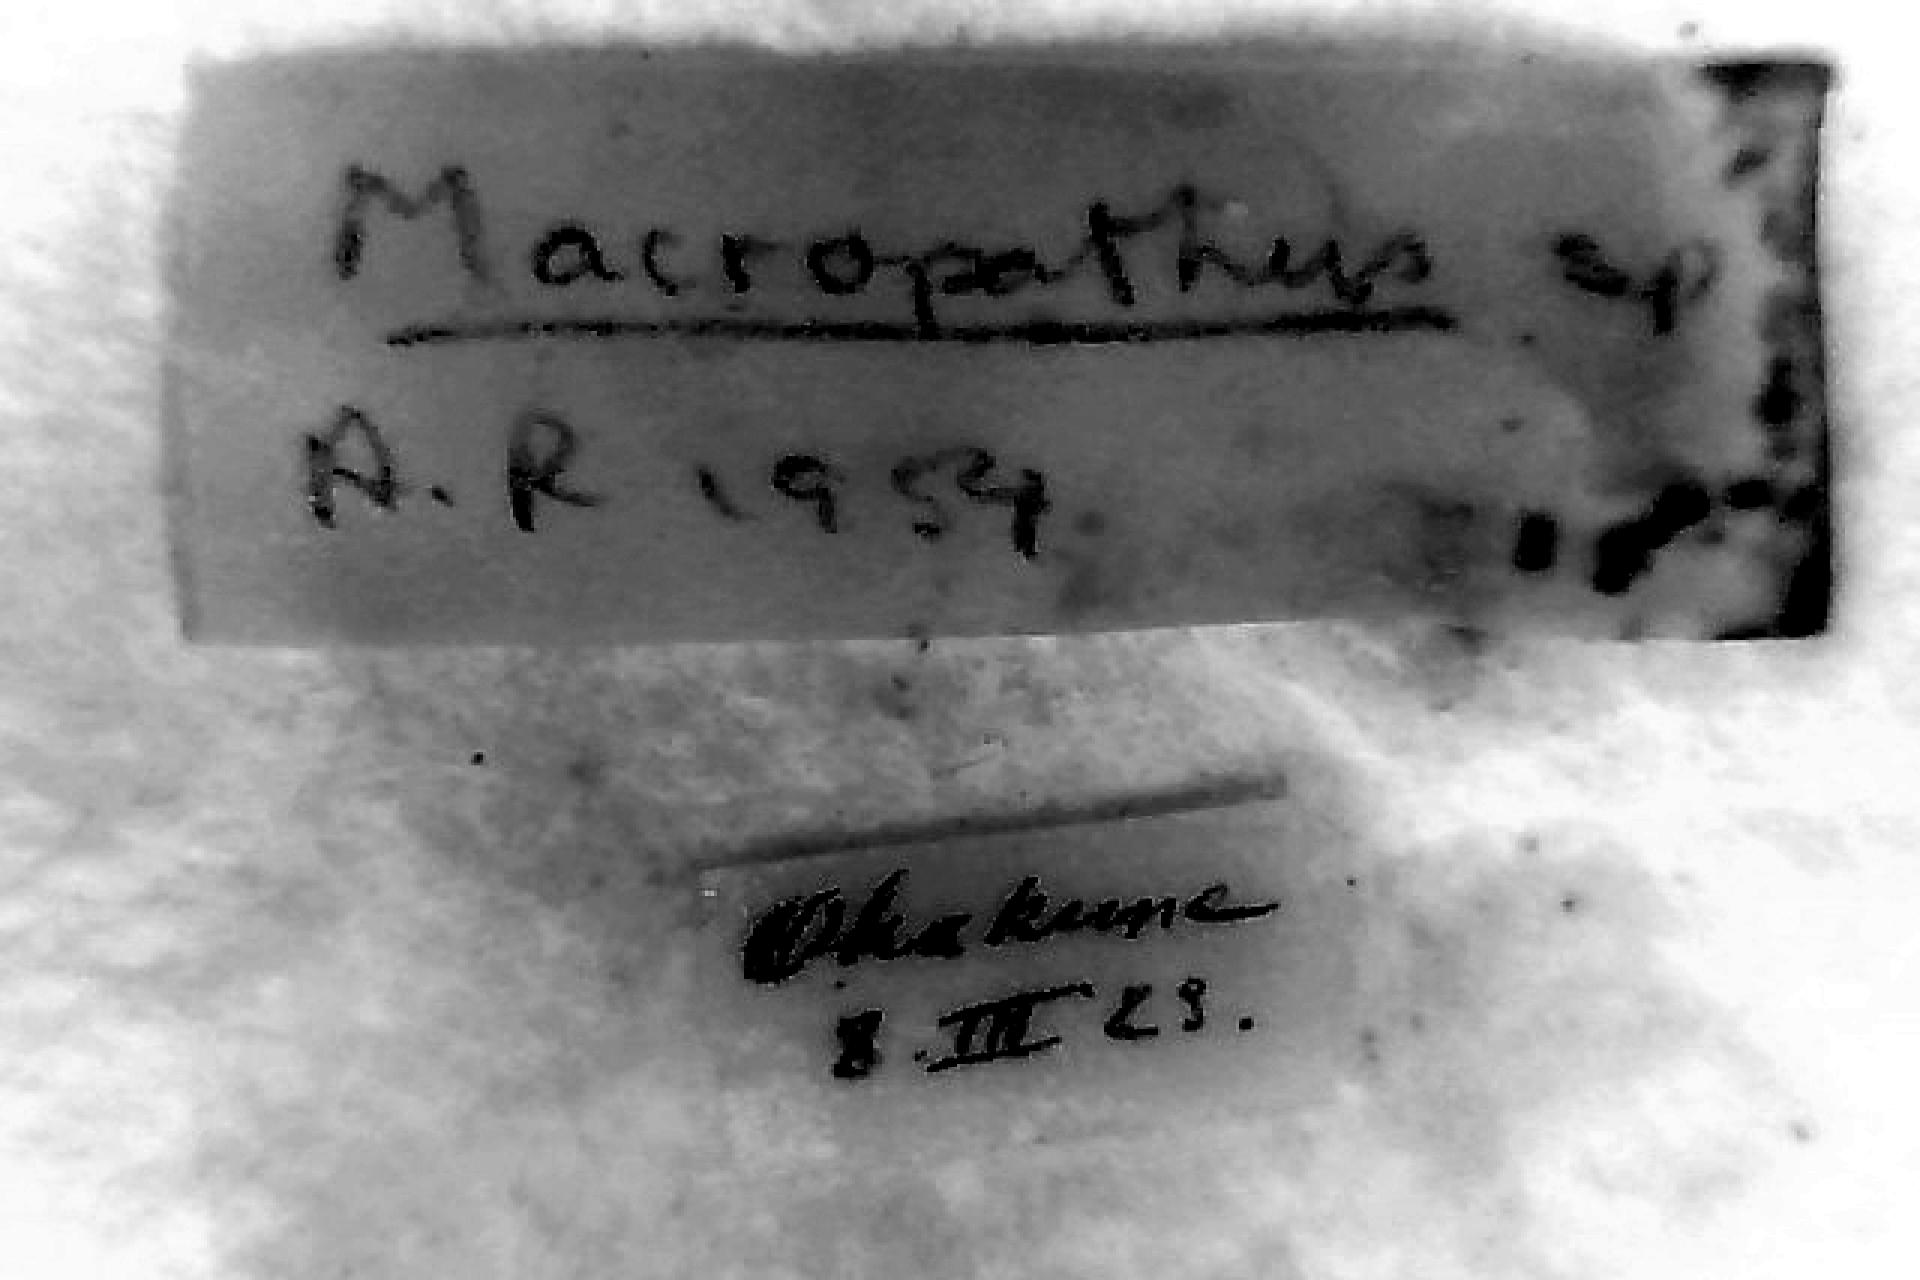 Macropathus sp
A. R 1954
Ohakune
8. III 23.